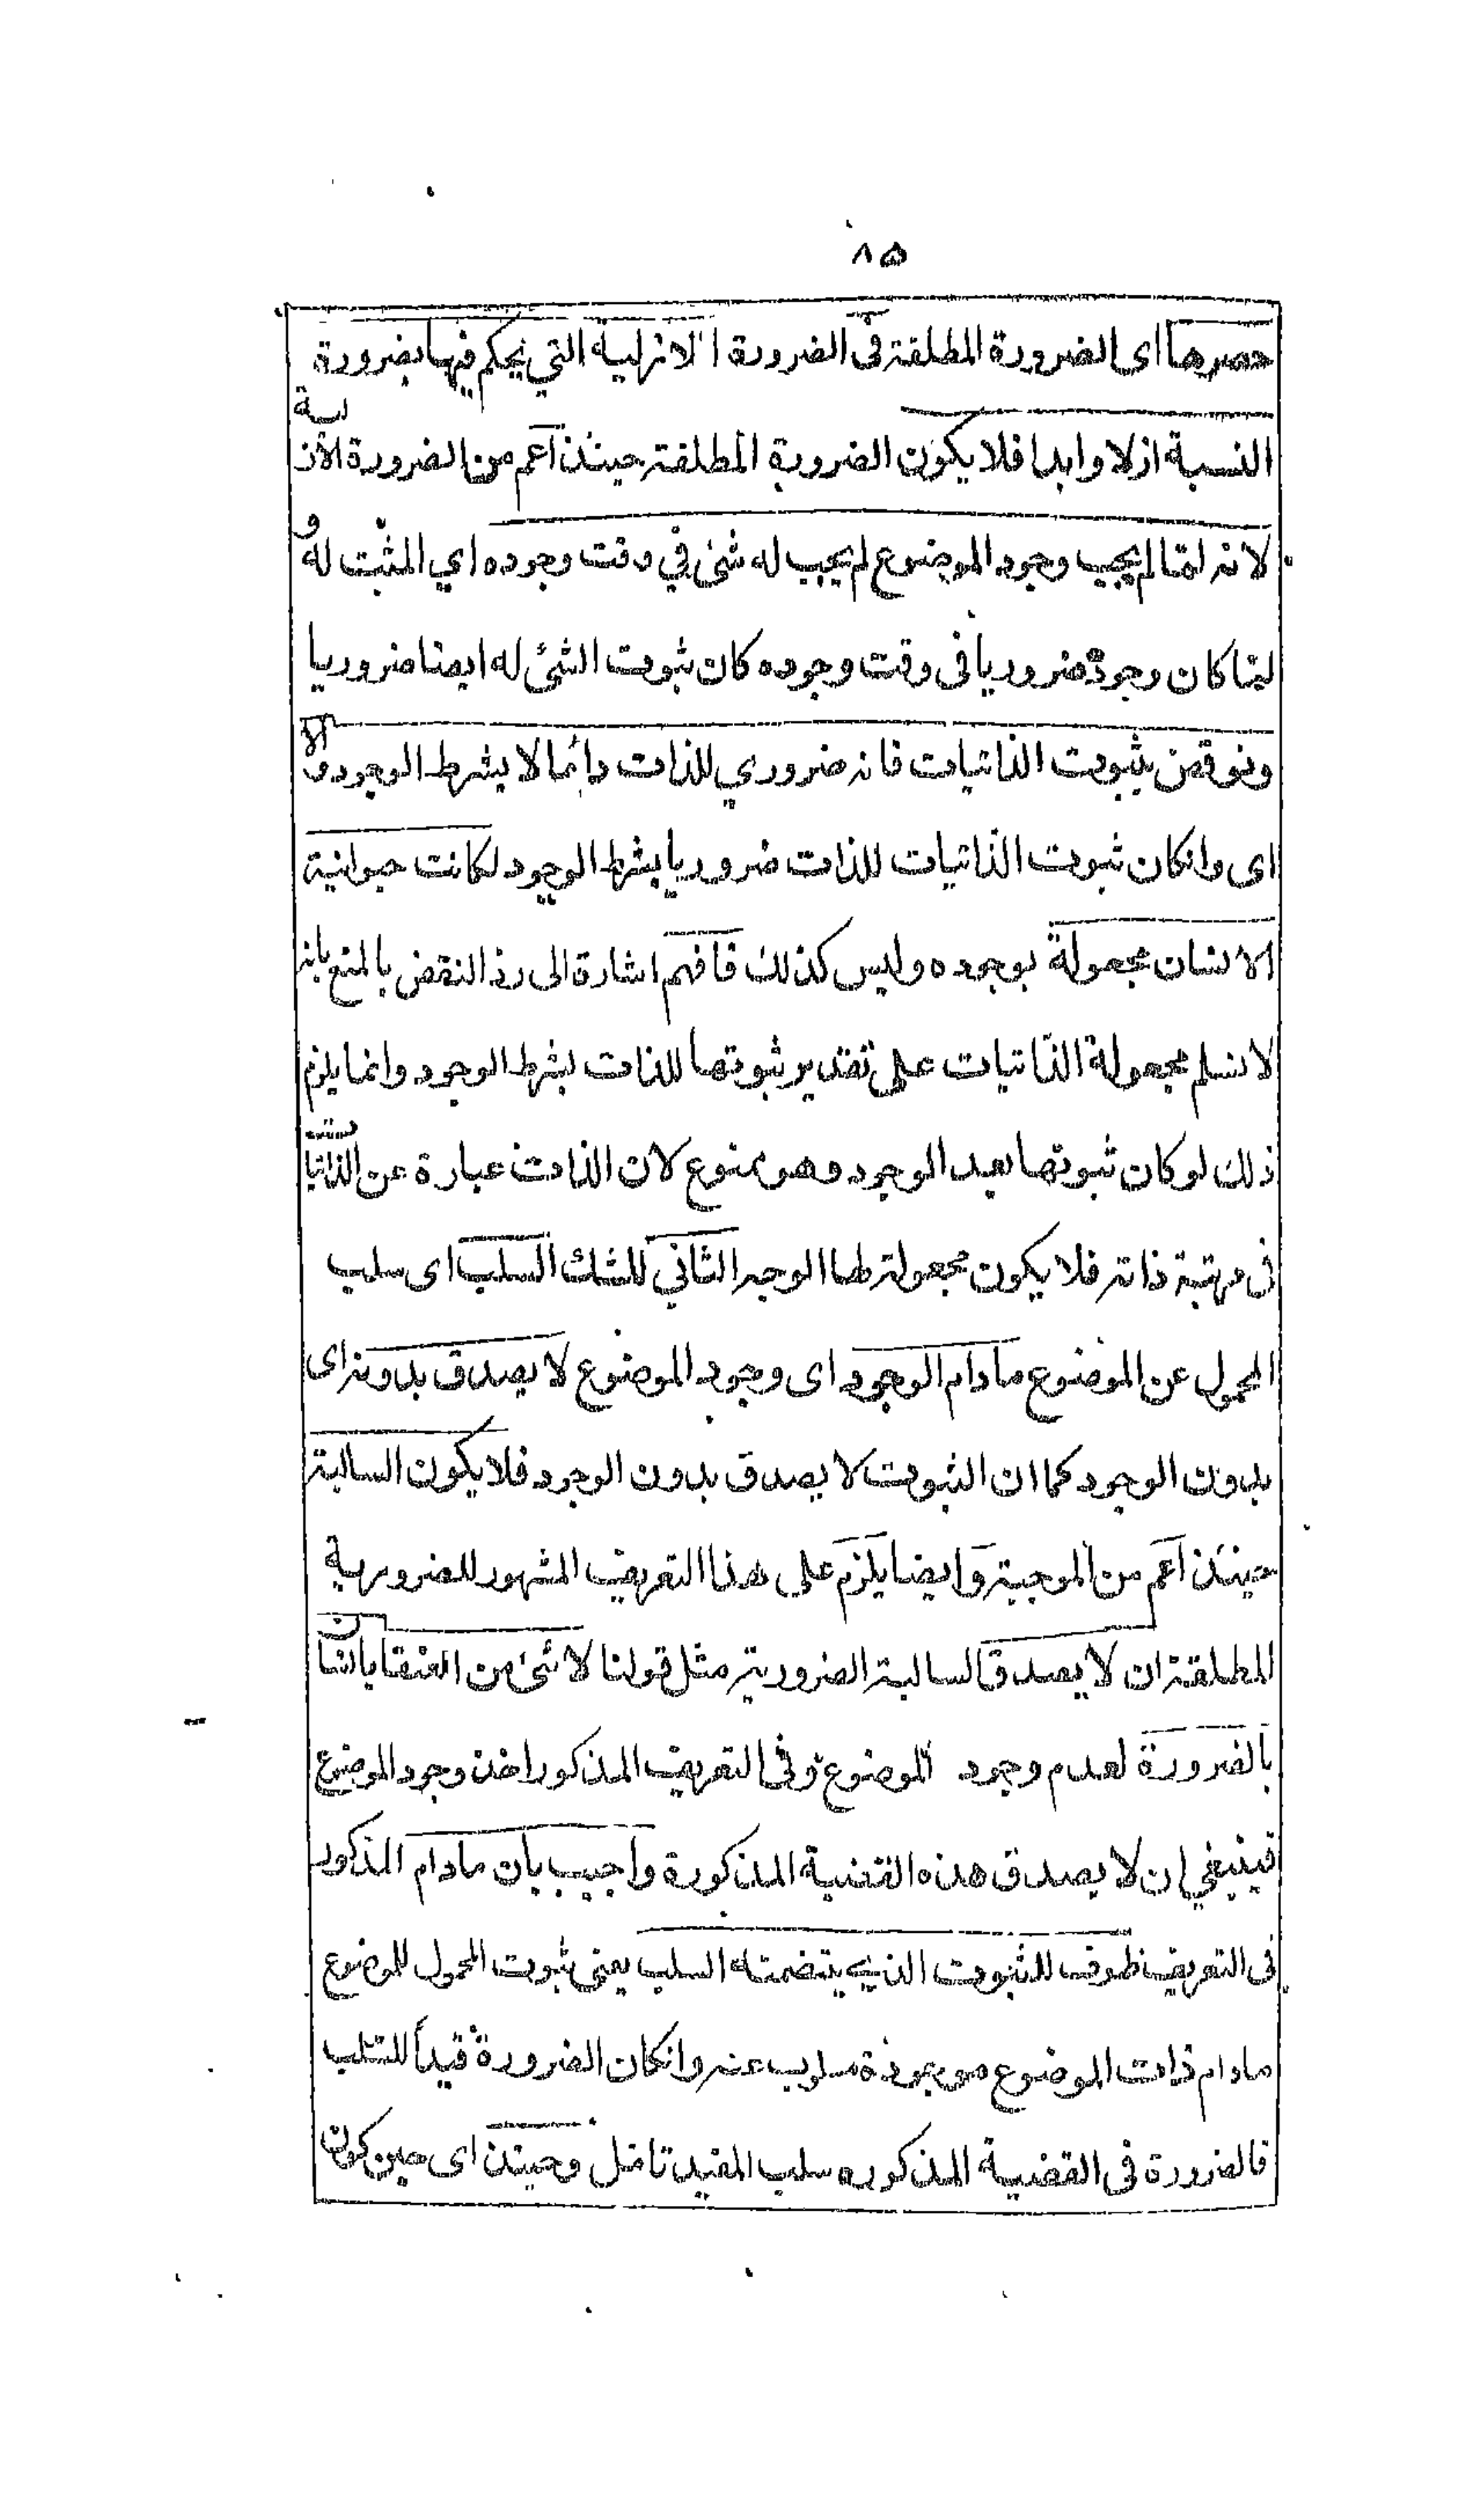 ۸۵
حصرها اى الضرورة المطلقة فى الضرورة الازلية التي يحكم فيها بضرورة
النسبة ازلا وابدا فلا يكون الضرورة المطلقة حينئذ اعم من الضرورة الازلية
لانه لما لم يجب وجود الموضوع لم يجب له شئ في وقت وجوده اي المثبت له و
لما كان وجوده ضروريا فى وقت وجوده كان ثبوت الشئ له ايضا ضروريا
ونوقض بثبوت الذاتيات فانه ضروري للذات دائما لا بشرط الوجود والا
اى وانكان ثبوت الذاتيات للذات ضروريا بشرط الوجود لكانت حيوانية
الانسان مجعولة بوجوده وليس كذلك فافهم اشارة الى رد النقض بالمنع بانه
لا نسلم مجعولة الذاتيات على تقدير ثبوتها للذات بشرط الوجود وانما يلزم
ذلك لو كان ثبوتها بعد الوجود وهو ممنوع لان الذات عبارة عن الذاتيات
فى مرتبة ذاته فلا يكون مجعولة لها الوجه الثاني للشك السلب اى سلب
المحمول عن الموضوع مادام الوجود اى وجود الموضوع لا يصدق بدونه اى
بدون الوجود كما ان الثبوت لا يصدق بدون الوجود فلا يكون السالبة
حينئذ اعم من الموجبة وايضا يلزم على هذا التعريف المشهور للضرورية
المطلقة ان لا يصدق السالبة الضرورية مثل قولنا لا شئ من العنقا بانسان
بالضرورة لعدم وجود الموضوع وفى التعريف المذكور اخذ وجود الموضوع
فينبغي ان لا يصدق هذه القضية المذكورة واجيب بان مادام المذكور
فى التعريف ظرف للثبوت الذي يتضمنه السلب يعنى ثبوت المحمول للموضوع
مادام ذات الموضوع موجودة مسلوب عنه وانكان الضرورة قيدا للسلب
فالضرورة فى القضية المذكوره سلب المقيد تامل وحينئذ اى حين كون